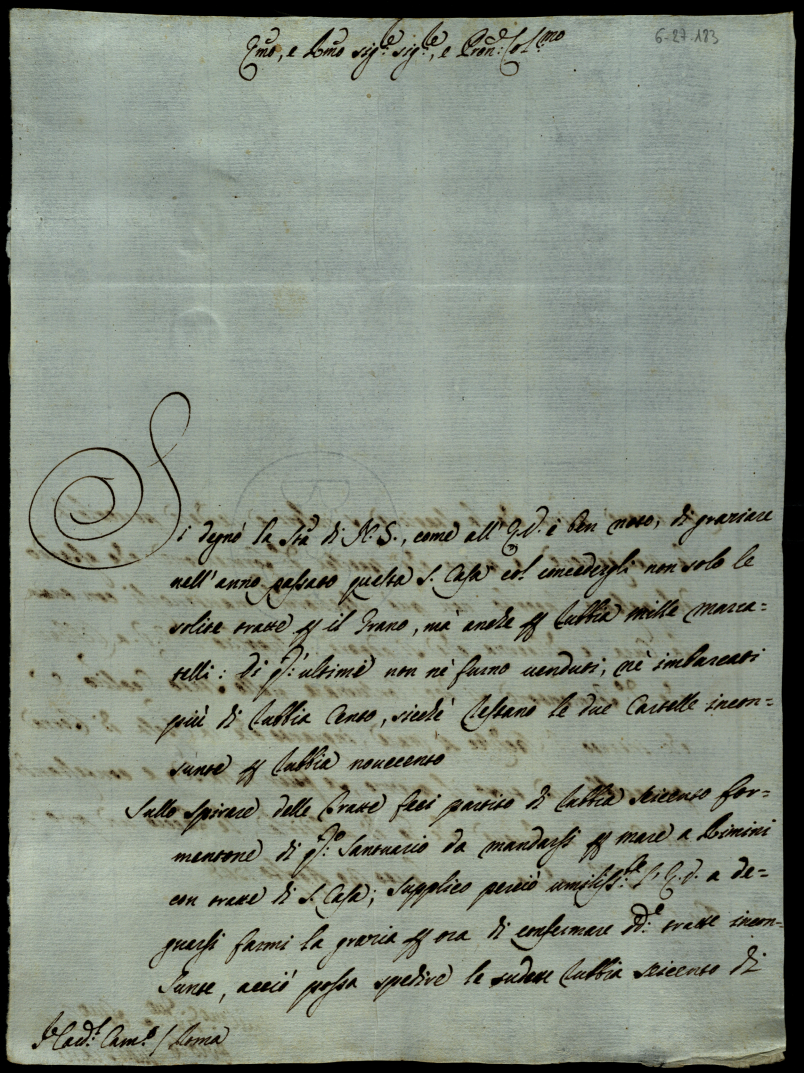 6-27-183
Emo, e Rmo sig.re sig.re, e Pron.e Col.mo
Si degnò la Stà di N. S., come all'E. V. è ben noto, di graziare
nell'anno passato questa S. Casa col concedergli non solo le
solite tratte per il Grano, mà anche per Rubbia mille marza=
telli: di q.i ultimi non nè furno venduti, nè imbarcati
più di Rubbia Cento, sicchè restano le due Cartelle incon=
sunte per Rubbia novecento
Sullo spirare delle tratte feci partito di Rubbia seicento for=
mentone di q.o Santuario da mandarsi per mare a Rimini
con tratte di S. Casa; supplico perciò umiliss.te l'E. V. a de=
gnarsi farmi la grazia per ora di confermare dd.e tratte incon=
sunte, acciò possa spedire le sudette Rubbia seicento di
Card.l Cam.o / Roma